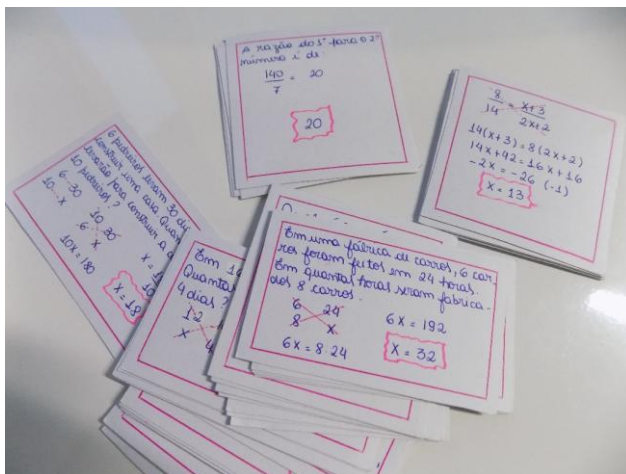 A razão do 1° para o 2°
número é de:
140
7
= 20
20
8 = x+3
14 2x+2
14(x+3) = 8(2x+2)
14x+42 = 16x+16
-2x = -26 (-1)
x = 13
6 pedreiros
construir uma casa. Quan
para construir a
10 pedreiros?
6 30
10 x
10 30
6 x
10x = 180
x = 18
Em
Quantas
4 dias?
12
x 4
Em uma fábrica de carros, 6 car-
ros foram feitos em 24 horas.
Em quantas horas seram fabrica-
dos 8 carros.
6 24
8 x
6x = 8.24
6x = 192
x = 32